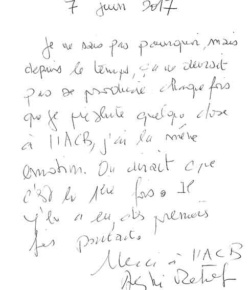 7 juin 2017
Je ne sais pas pourquoi, mais
depuis le temps, ça ne devrait
pas se produire chaque fois
que je présente quelque chose
à l'IACB, j'ai la même
émotion. On dirait que
c'est la 1ère fois. Il
y en a eu, des premières
fois pourtant.
Merci à l'IACB